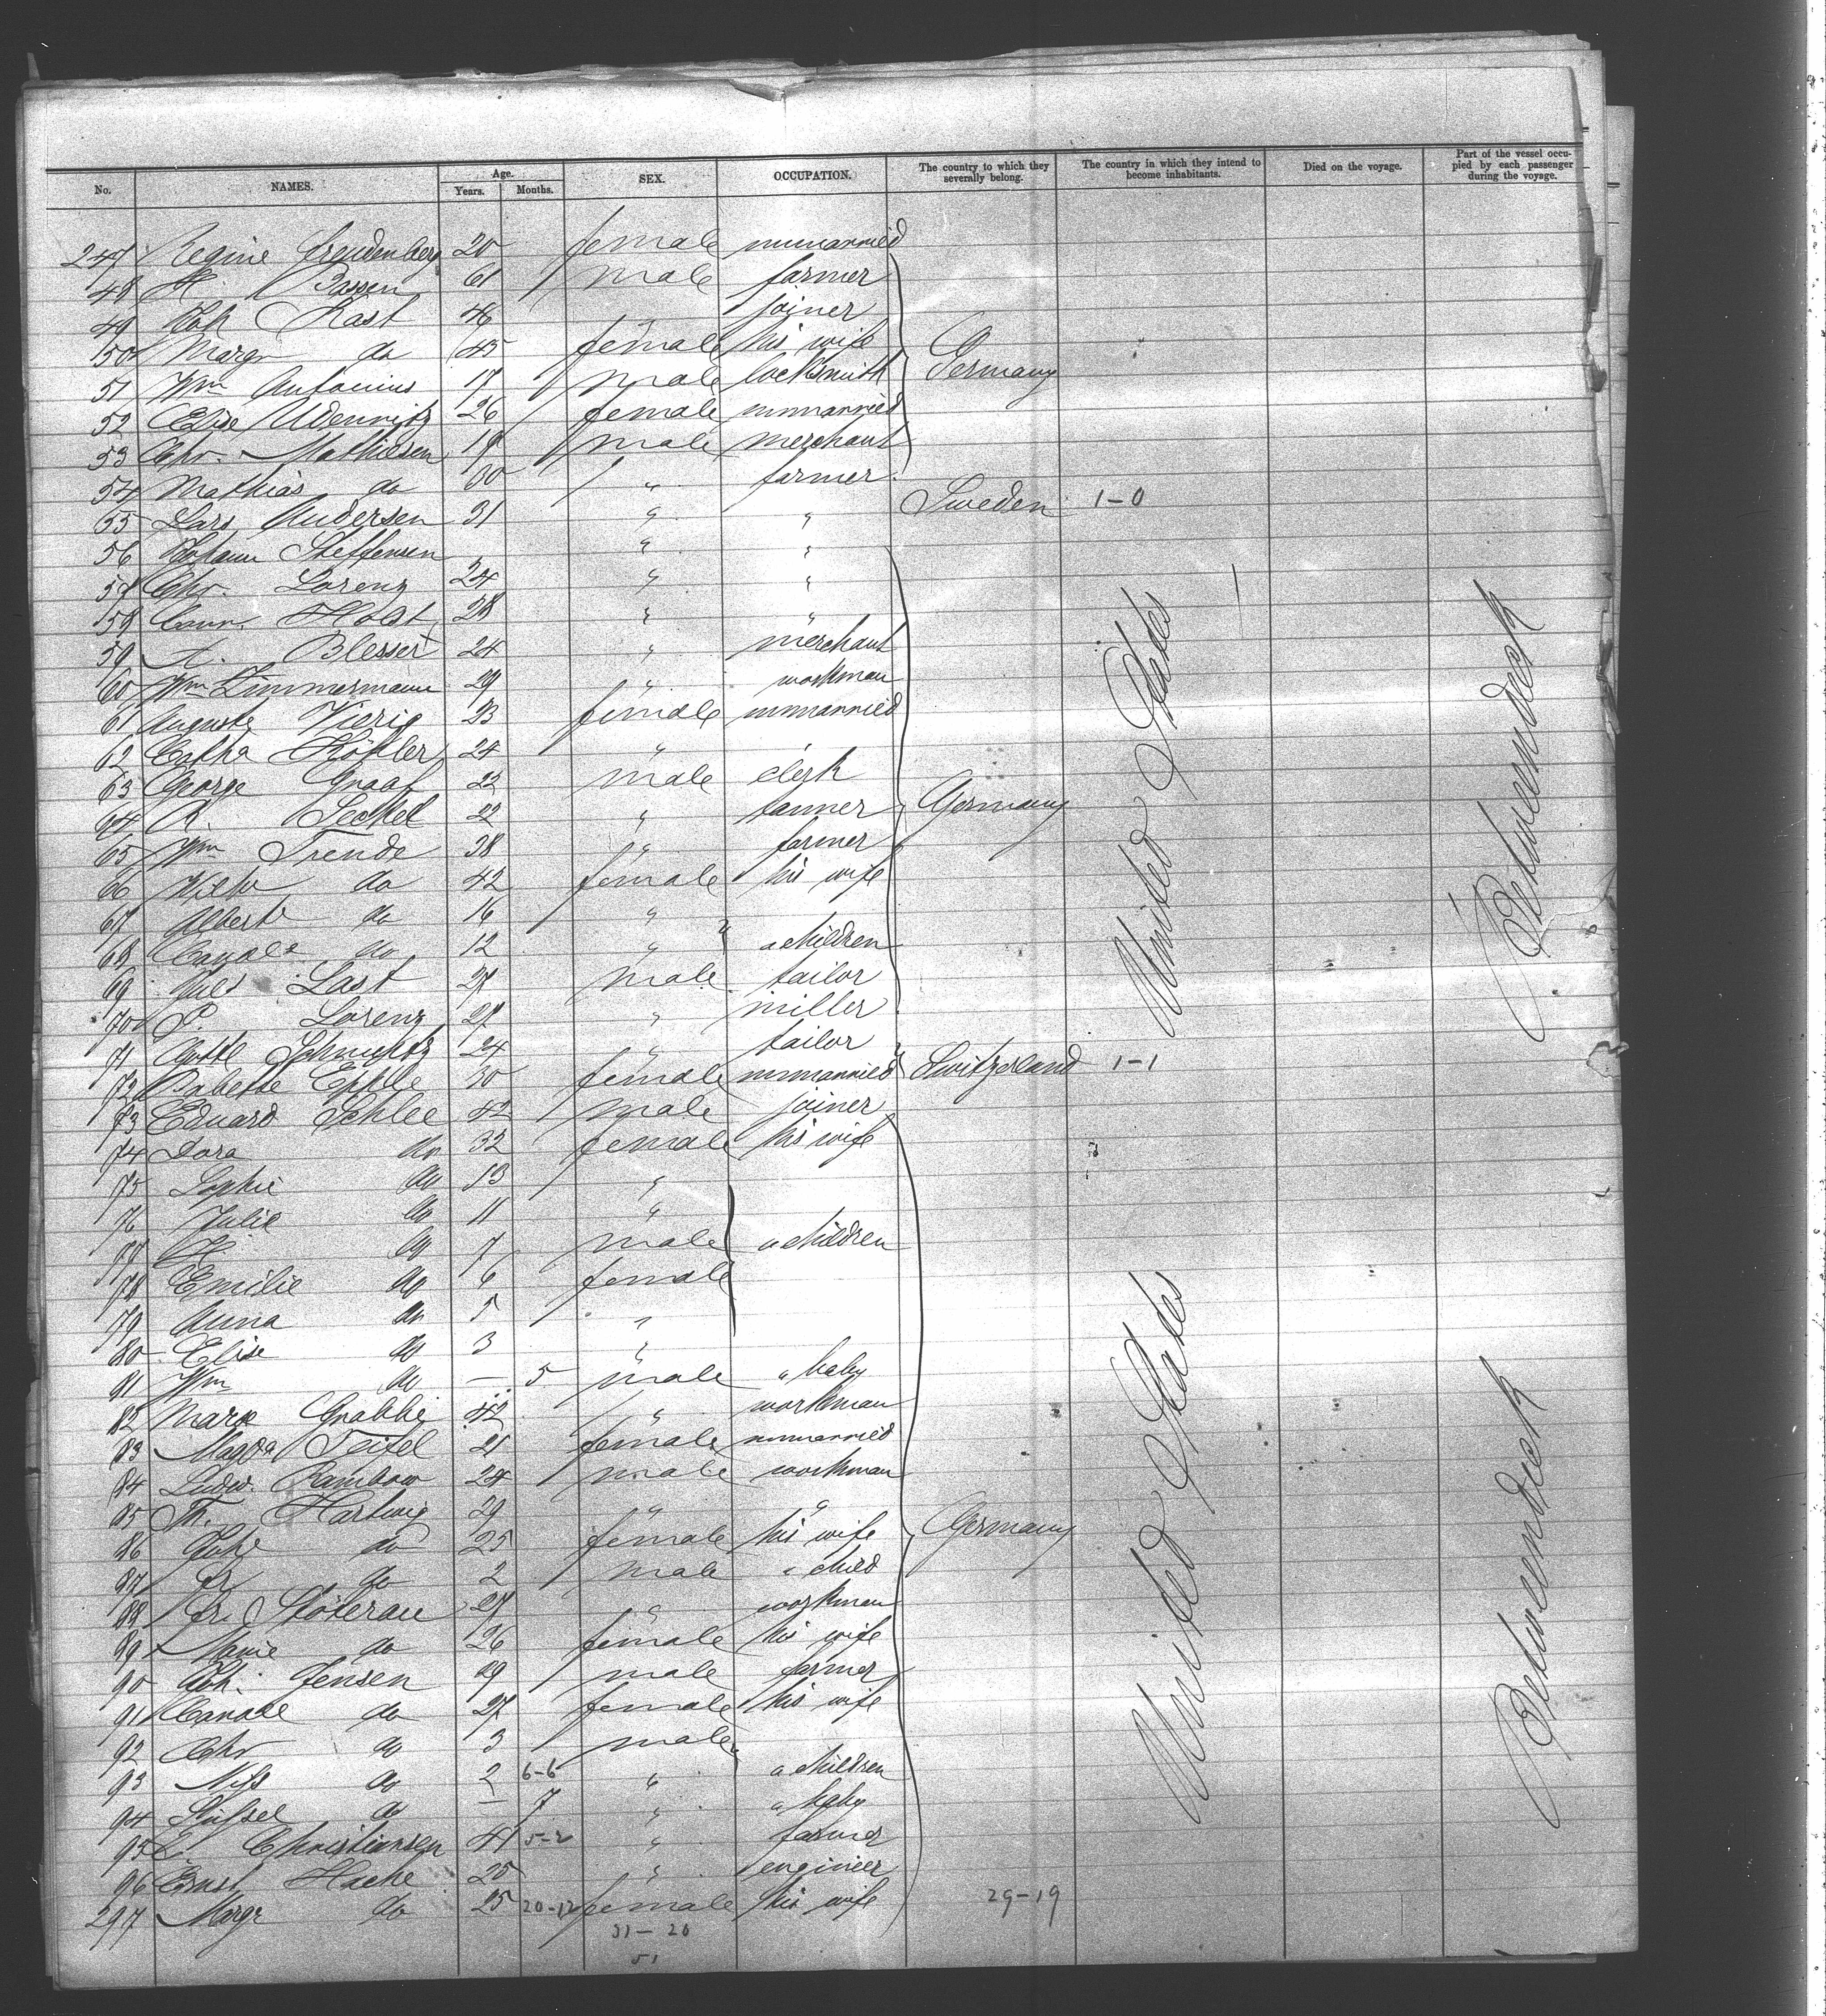 No. NAMES. Age. Years. Months. SEX. OCCUPATION. The country to which they severally belong. The country in which they intend to become inhabitants. Died on the voyage. Part of the vessel occupied by each passenger during the voyage.
247 Regine Freudenberg 20 female unmarried
48 H. Bassen 61 male farmer
49 Joh Kast 46 " joiner
150 Margr do 45 female his wife
51 Wm Antonius 17 male locksmith Germany
52 Elise 26 female unmarried
53 Chr. Mathiesen 19 male merchant
54 Mathias do 30 " farmer
55 Lars Andersen 31 " " Sweden 1-0
56 Johann Steffensen " "
57 Chr. Lorenz 24 " "
158 Conr. Holst 28 " "
59 A. Blesser 24 " merchant
60 Wm Zimmermann 29 " workman
61 Auguste Vierig 23 female unmarried
62 Cathr Köhler 24 "
63 George Graaf 22 male clerk
64 R. Seckel 22 " tanner Germany
65 Wm Trende 38 " farmer
66 Wilhe do 42 female his wife
67 Albert do 16 "
68 do 12 " a children
69 Jules Last 27 male tailor
70 P. Lorenz 27 " miller
71 24 " tailor
72 Babette 30 female unmarried Switzerland 1-1
73 Eduard Schlee 42 male joiner
74 Dora do 32 female his wife
75 Sophie do 13 "
76 Julie do 11 "
77 H. do 7 male a children
78 Emilie do 6 female
79 Anna do 5 "
80 Elise do 3 "
81 Wm do - 5 male a baby
82 Marx Grabbe 42 " workman
83 Magda Teifel 21 female unmarried
84 Ludw. Rambow 24 male workman
85 Th. Hartwig 29 " "
86 do 25 female his wife Germany
87 Fr do 2 male a child
88 Fr. 27 " workman
89 Marie do 26 female his wife
90 Joh. Jensen 29 male farmer
91 do 27 female his wife
92 Chr do 3 male
93 Niss do 2 6-6 " a children
94 do - 7 " a baby
95 L. Christiansen 41 5-2 " farmer
96 Ernst Hache 25 " engineer
297 Margr do 25 20-12 female his wife 29-19
31-20
51
United States
Betweendeck
United States
Betweendeck